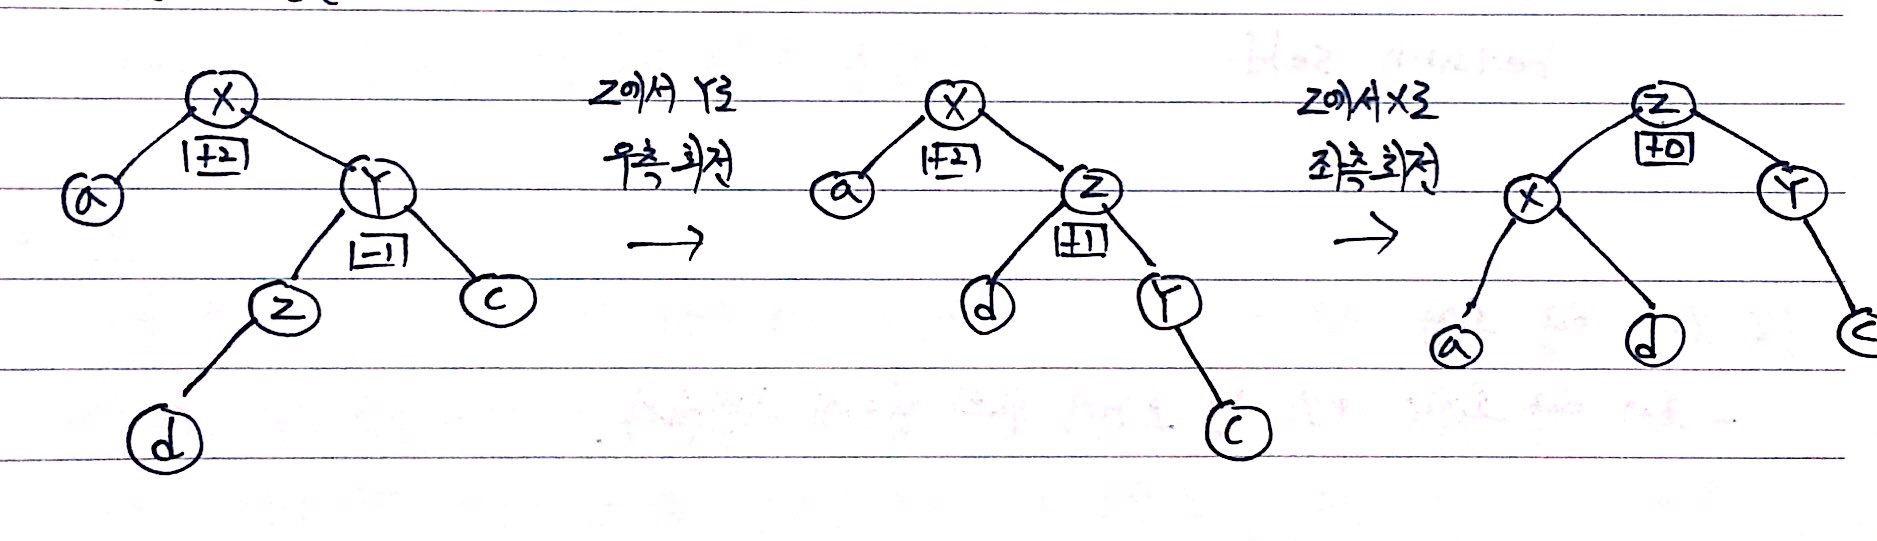 X
+2
a
Y
-1
Z
C
d
Z에서 Y로
우측 회전
X
+2
a
Z
+1
d
Y
C
Z에서 X로
좌측 회전
Z
+0
X
Y
a
d
C